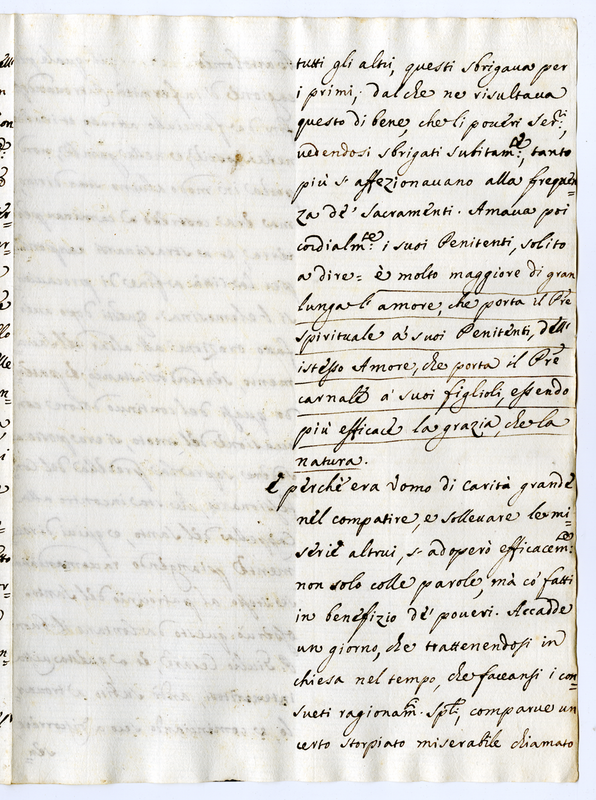 tutti gli altri, questi sbrigava per
i primi; dal che ne risultava
questo di bene, che li poveri ser.ⁱ,
vedendosi sbrigati subitam.ᵗᵉ, tanto
più s'affezionavano alla frequen=
za de' Sacramenti. Amava poi
cordialm.ᵗᵉ i suoi Penitenti, solito
a dire= è molto maggiore di gran
lunga l'amore, che porta il Pre
spirituale a' suoi Penitenti, dell'
istesso Amore, che porta il Pre
carnale a' suoi figlioli, essendo
più efficace la grazia, che la
natura.
E perchè era Uomo di carità grande
nel compatire, e sollevare le mi=
serie altrui, s'adoperò efficacem.ᵗᵉ
non solo colle parole, mà co' fatti
in benefizio de' poveri. Accadde
un giorno, che trattenendosi in
chiesa nel tempo, che faceansi i con=
sueti ragionam.ⁱ sp̃li, comparve un
certo storpiato miserabile chiamato